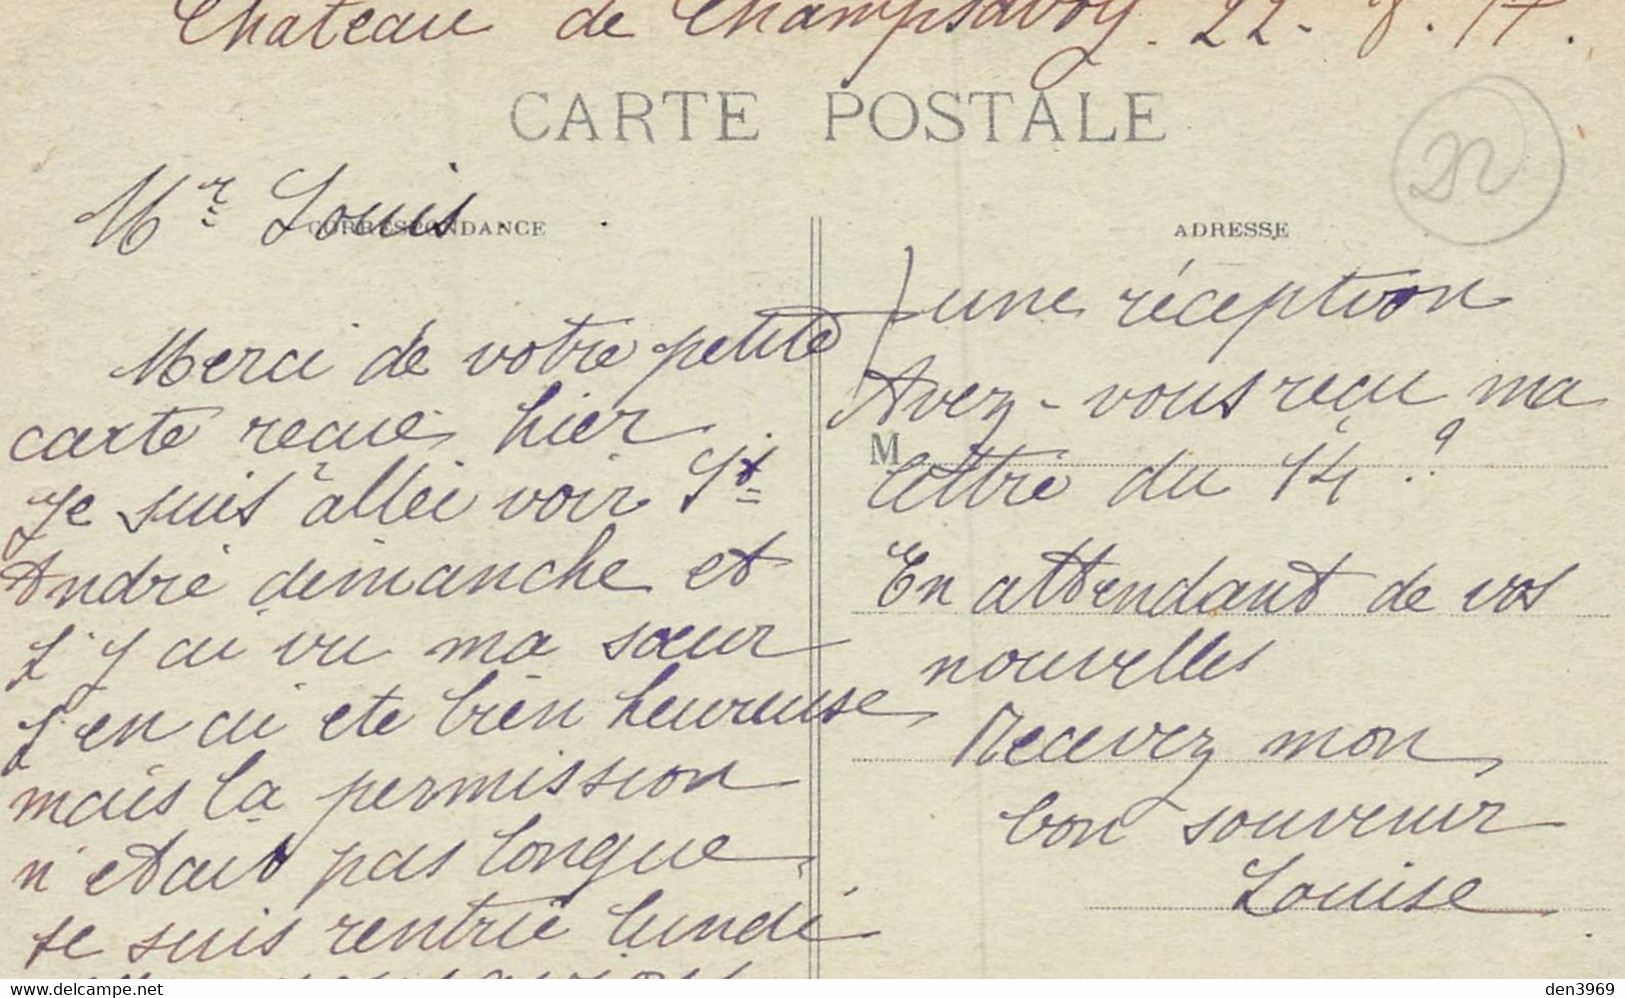 Château de Champsavoy. 22-8.17.
CARTE POSTALE
22
Mr Louis.
CORRESPONDANCE
Merci de votre petite
carte reçue hier.
Je suis allée voir St
André dimanche et
j'y ai vu ma sœur
j'en ai ete bien heureuse
mais la permission
n'etait pas longue,
je suis rentrie lundi
avions
ADRESSE
une réception
Avez-vous reçu ma
M
lettre du 14?
En attendant de vos
nouvelles
Recevez mon
bon souvenir
Louise
www.delcampe.net
den3969